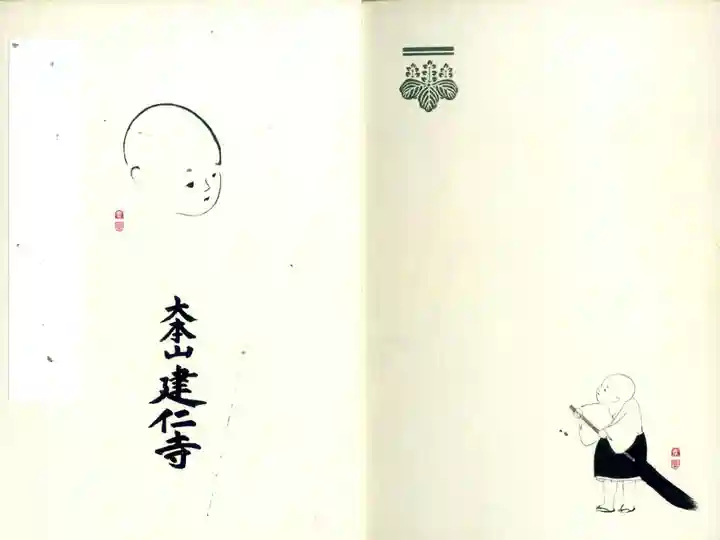 大本山
建仁寺